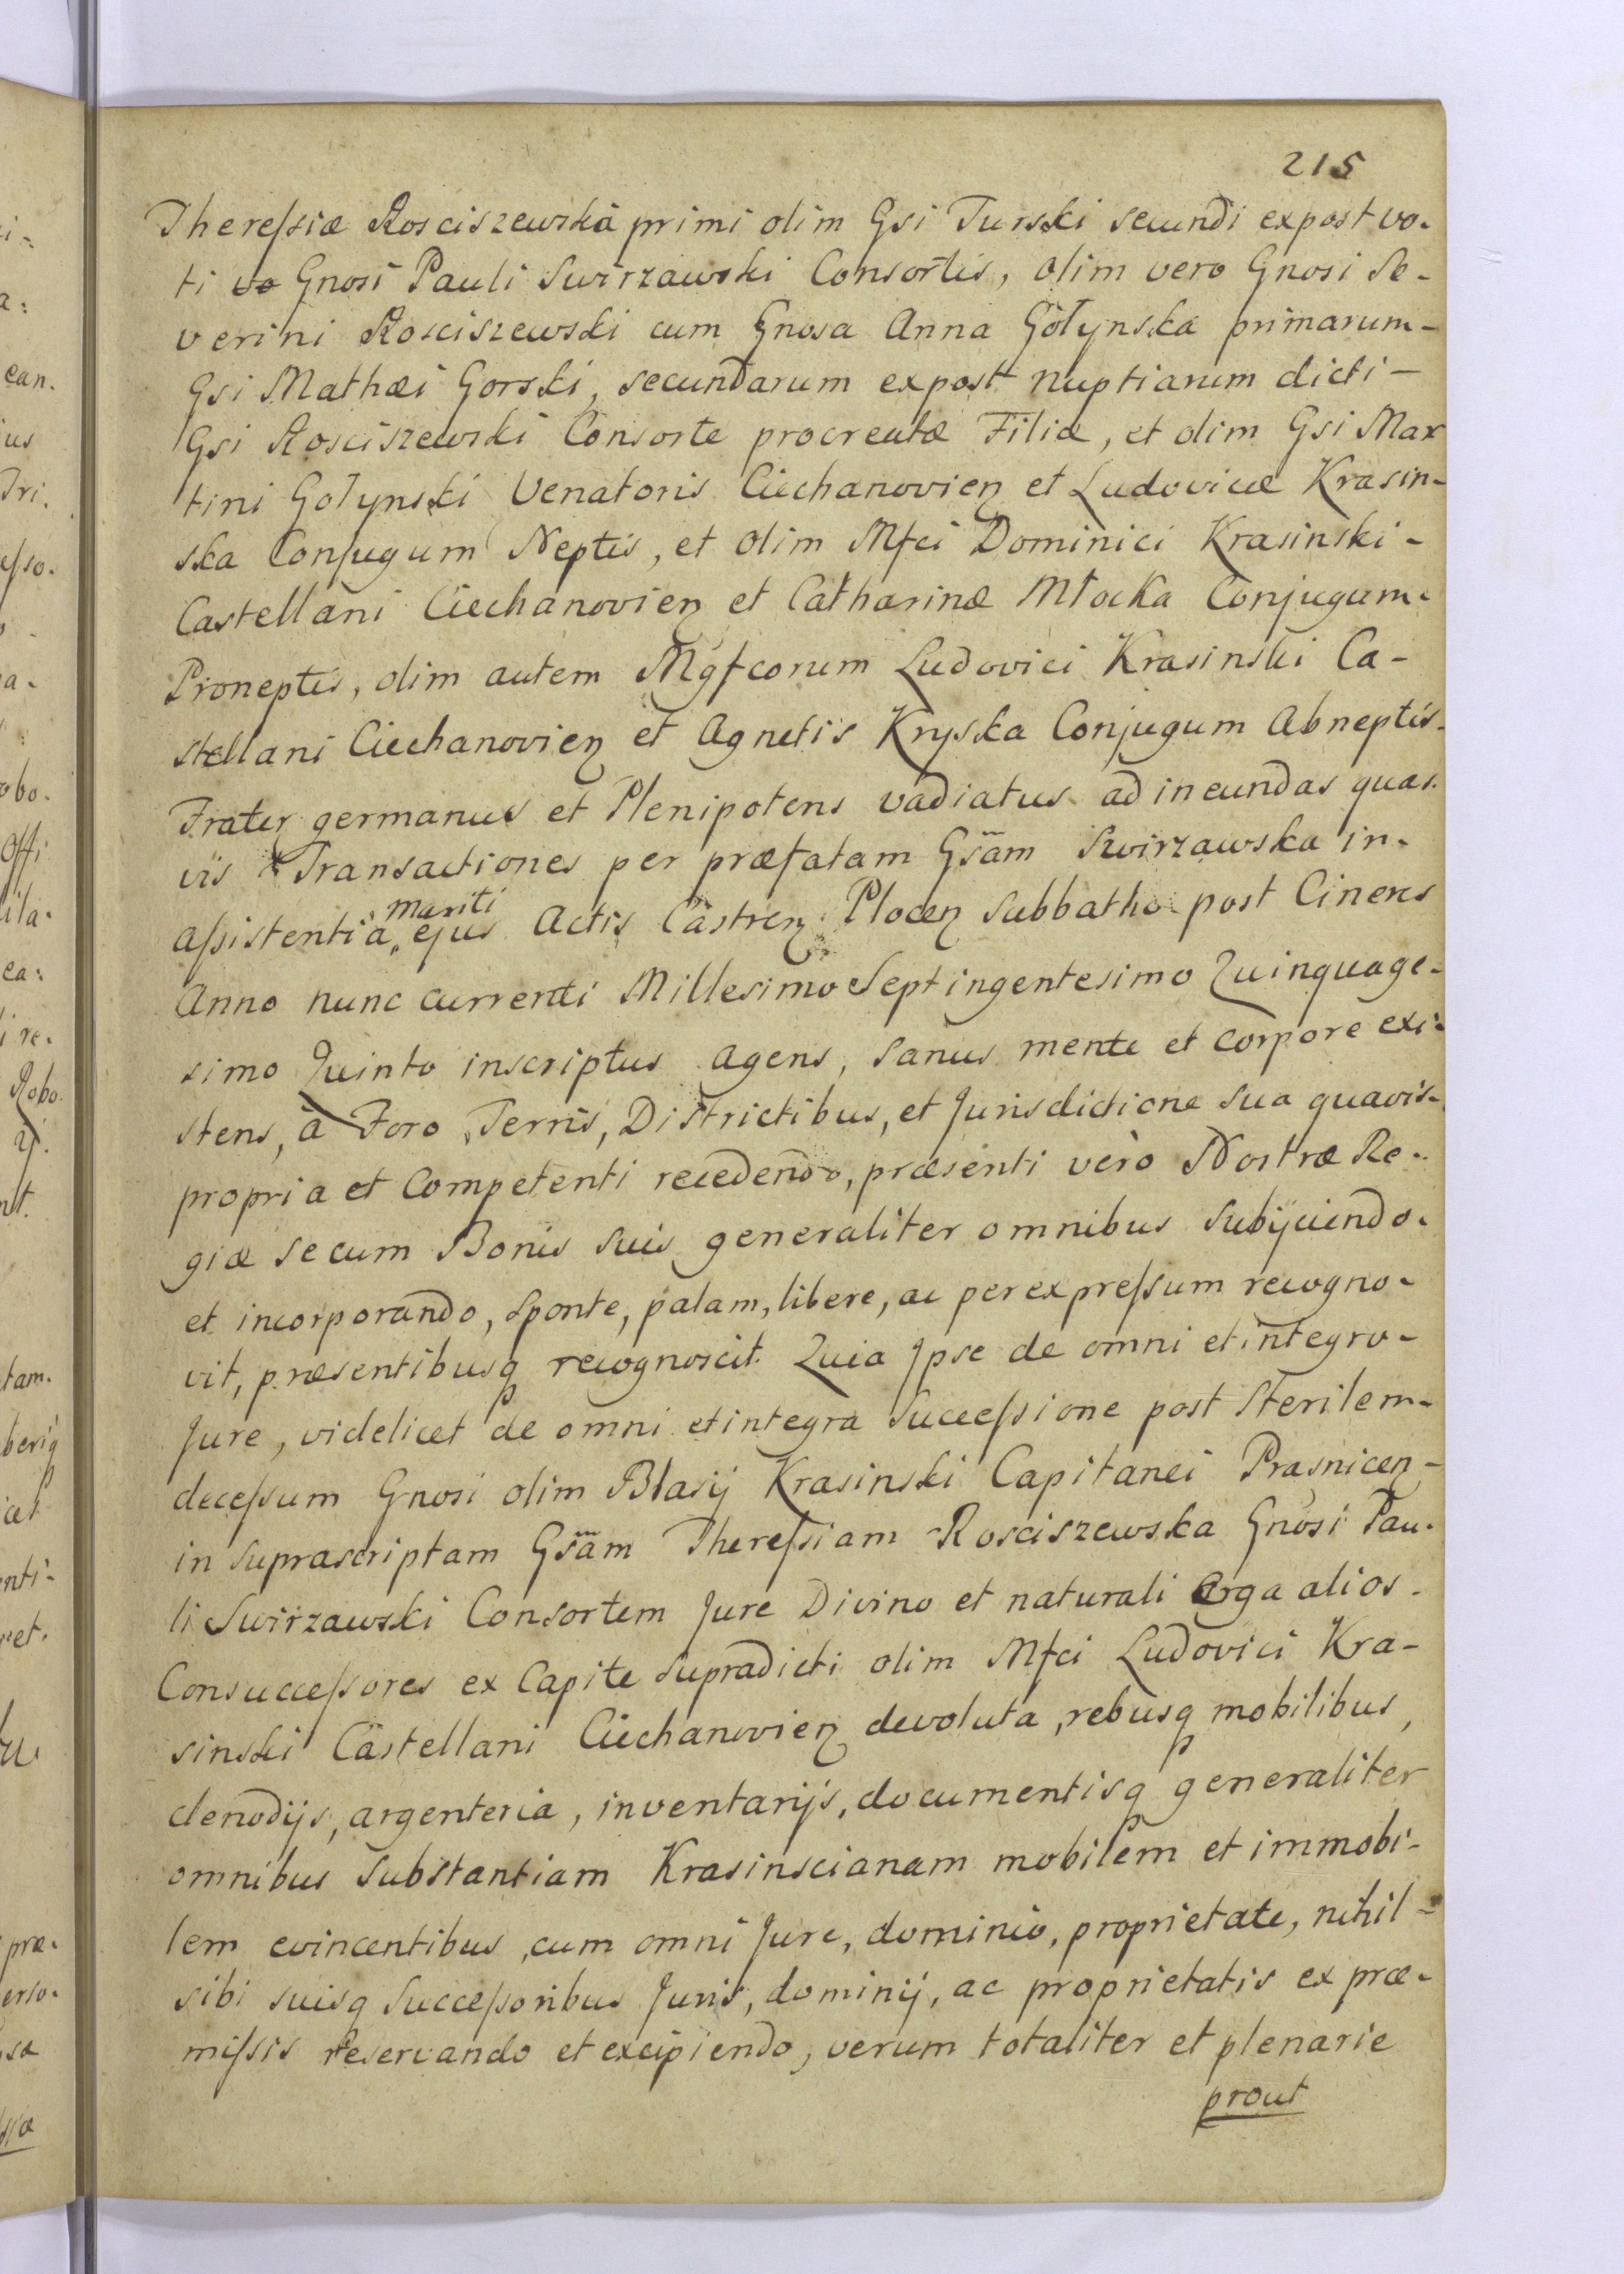 215
Theressiæ Rosciszewska primi olim Gsi Turski secundi expost vo-
ti vo Gnosi Pauli Swirzawski Consortis, olim vero Gnosi Se-
verini Rosciszewski cum Gnosa Anna Gołynska primarum-
Gsi Mathæi Gorski, secundarum expost nuptiarum dicti-
Gsi Rosciszewski Consorte procreatæ Filiæ, et olim Gsi Mar
tini Gołynski Venatoris Ciechanovień et Ludovicæ Krasin-
ska Conjugum Neptis, et olim Mfci Dominici Krasinski-
Castellani Ciechanovień et Catharinæ Młocka Conjugum-
Proneptis, olim autem Mgfcorum Ludovici Krasinski Ca-
stellani Ciechanovień et Agnetis Kryska Conjugum Abneptis-
Frater germanus et Plenipotens vadiatus ad ineundas quas-
vis Transactiones per præfatam Gsam Swirzawska in-
assistentia mariti ejus Actis Castreń Ploceń Sabbatho post Cineres
Anno nunc currenti Millesimo Septingentesimo Quinquage-
simo Quinto inscriptus Agens, Sanus mente et corpore exi-
stens, à Foro, Terris, Districtibus, et Jurisdictione sua quavis-
propria et Competenti recedendo, præsenti verò Nostræ Re-
giæ se cum Bonis suis generaliter omnibus Subijciendo-
et incorporando, sponte, palam, libere, ac per expressum recogno-
vit, præsentibusq recognoscit. Quia Jpse de omni et integro-
Jure, videlicet de omni et integra Successione post Sterilem-
decessum Gnosi olim Blasij Krasinski Capitanei Prasniceń-
in suprascriptam Gsam Theressiam Rosciszewska Gnosi Pau-
li Swirzawski Consortem Jure Divino et naturali Erga alios-
Consuccessores ex Capite Supradicti olim Mfci Ludovici Kra-
sinski Castellani Ciechanovień devoluta, rebusq mobilibus,
clenodijs, argenteria, inventarijs, documentisq generaliter
omnibus Substantiam Krasinscianam mobilem et immobi-
lem evincentibus, cum omni Jure, dominio, proprietate, nihil-
sibi suisq Successoribus Juris, dominij, ac proprietatis ex præ-
missis reservando et excipiendo, verum totaliter et plenarie
prout